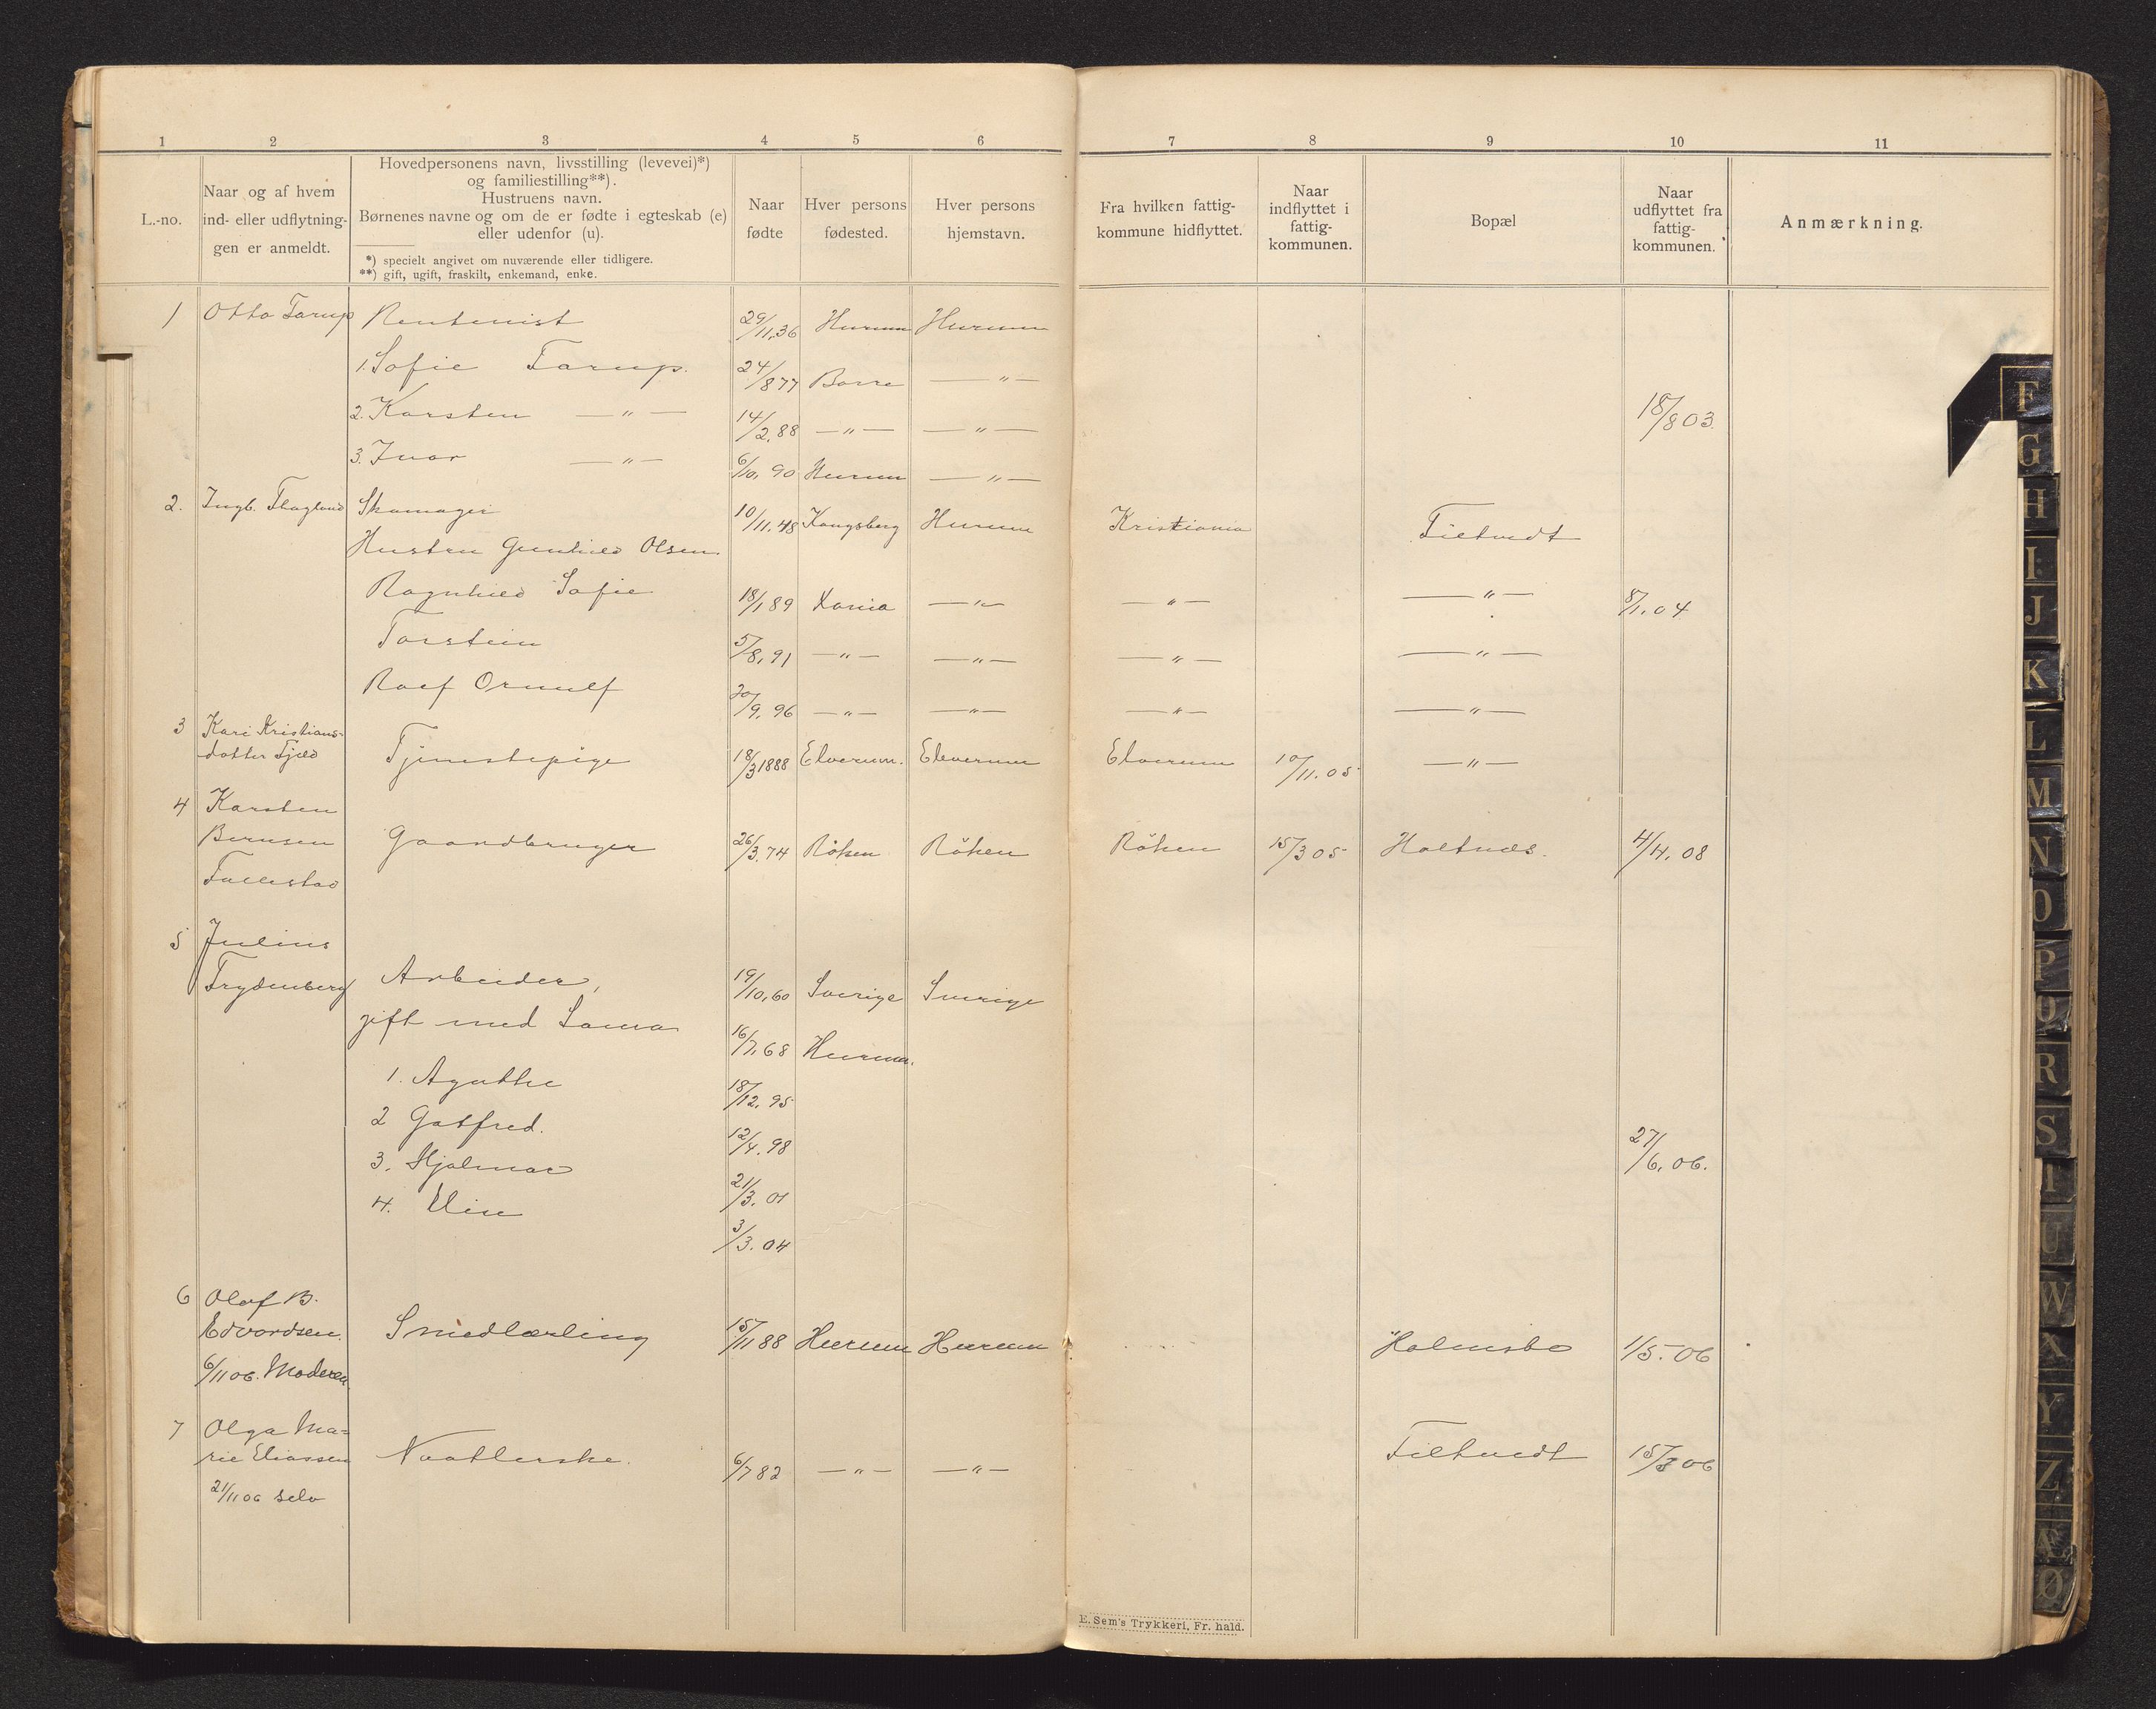 1 2 3 4 5 6 7 8 9 10 11
L.-no.
Naar og af hvem
ind- eller udflytnin-
gen er anmeldt.
Hovedpersonens navn, livsstilling (levevei)*)
og familiestilling**).
Hustruens navn.
Børnenes navne og om de er fødte i egteskab (e)
eller udenfor (u).
*) specielt angivet om nuværende eller tidligere.
**) gift, ugift, fraskilt, enkemand, enke.
Naar
fødte
Hver persons
fødested.
Hver persons
hjemstavn.
Fra hvilken fattig-
kommune hidflyttet.
Naar
indflyttet i
fattig-
kommunen.
Bopæl
Naar
udflyttet fra
fattig-
kommunen.
Anmærkning.
1 Otto Tarup Rentenist 29/11.36 Hurum Hurum
1. Sofie Tarup. 24/877 Borre —"—
2. Karsten —"— 14/2.88 —"— —"— 18/803.
3. Ivar —"— 6/10.90 Hurum —"—
2. Ingb. Skomager 10/11.48 Kongsberg Hurum Kristiania Filtvedt
Hustru Gunhild Olsen.
Ragnhild Sofie 18/189 Xania —"— —"— —"— 8/1.04
Torstein 5/8.91 —"— —"— —"— —"—
Rolf Ornulf 20/9.96 —"— —"— —"— —"—
3 Kari Kristians-
datter Fjeld Tjenestepige 18/31888 Elverum. Elverum Elverum 10/11.05 —"—
4 Karsten
Bernsen Gaardbruger 26/3.74 Röken Röken Röken 15/305 Holtnæs. 4/4.08
5 Julius
Frydenberg Arbeider, 19/10.60 Sverige Sverige
gift med 16/7.68 Hurum.
1. Agathe 18/12.95
2 Gotfred. 12/4.98 27/6.06.
3. Hjalmar 21/3.01
4. 3/3.04
6 Olaf B.
Edvardsen. Smedlærling 15/1188 Hurum Hurum Holmsbo 1/5.06
6/1106. Moderen.
7 Olga Ma=
rie Eliassen Naatlerske. 6/782 —"— —"— Filtvedt 15/306
21/1106 selv
E. Sem's Trykkeri, Fr. hald.
F
G
H
I
J
K
L
M
N
O
P
Q
R
S
T
U
W
X
Y
Z
Æ
Ø